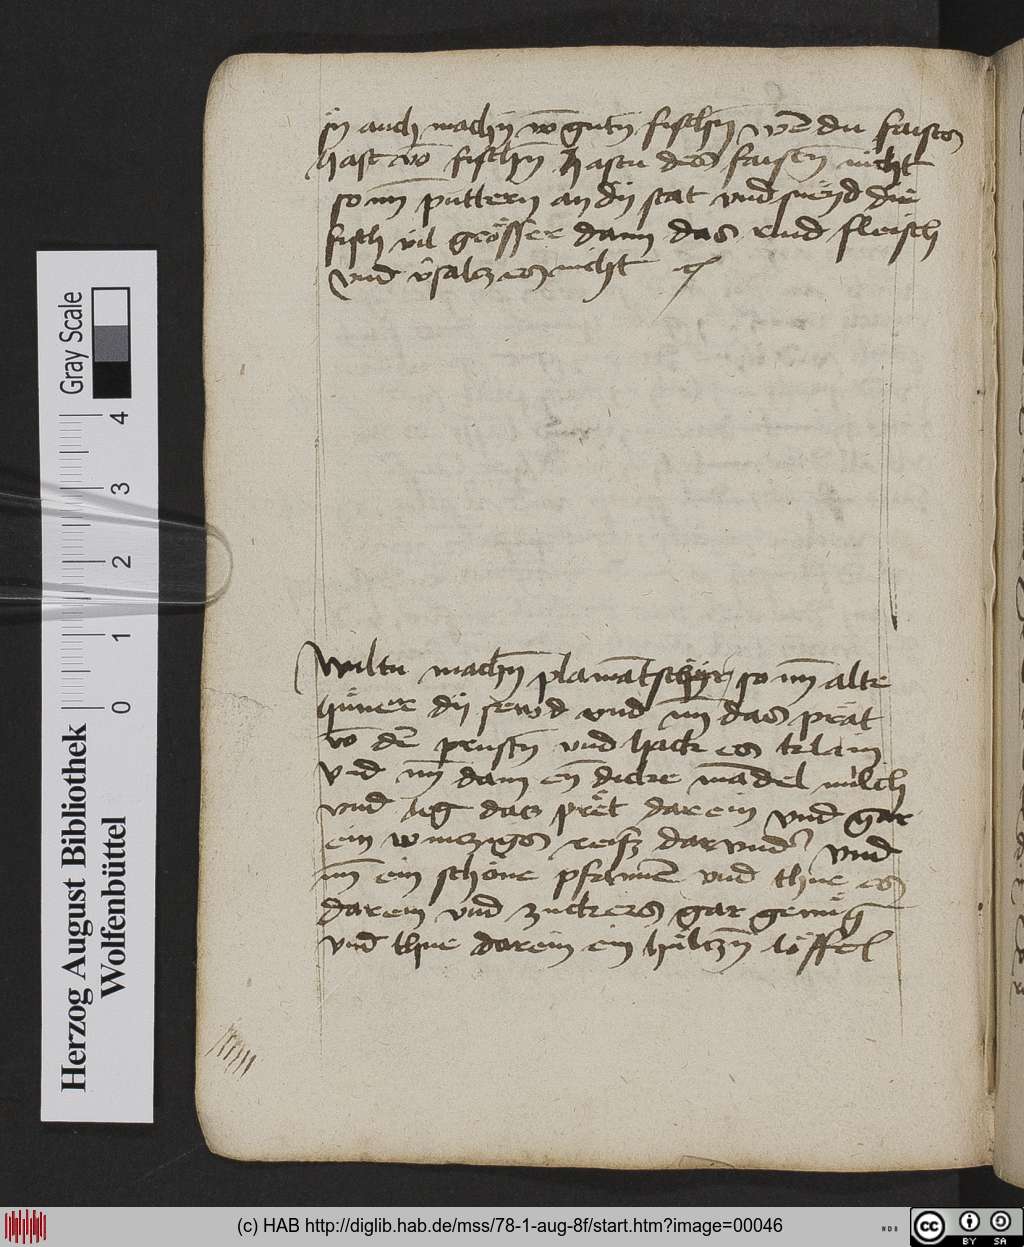 in auch machn̄ võ gutn̄ fischn̄ wen̄ du faistes
hast võ fischn̄ hastu des faistn̄ nicht
so nm̄ puttern an dij stat vnd sneyd die
fisch vil grösser dann das rind fleisch
vnd v̄salcz es nicht
Wiltu machn̄ plamatschyr so nm̄ alte
hüner dij sewd vnd nm̄ das prät
võ dē prustn̄ vnd hack es klein
vnd nm̄ dann en̄ dicke mādel milch
vnd leg das prët darein vnd gar
ein winczigs reisz darvndʼ vnd
nm̄ ein schöne pfannen vnd thue es
darein vnd zuckers gar genug
vnd thue darein ein hülczn̄ löffel
Herzog August Bibliothek
Wolfenbüttel
0 1 2 3 4
Gray Scale
(c) HAB http://diglib.hab.de/mss/78-1-aug-8f/start.htm?image=00046
WDB
cc BY SA